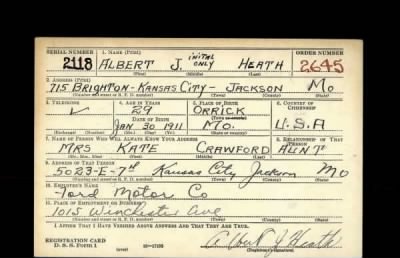 SERIAL NUMBER 1. NAME (Print) ORDER NUMBER
2118 ALBERT J. INITAL ONLY HEATH 2645
(First) (Middle) (Last)
2. ADDRESS (Print)
715 BRIGHTON - KANSAS CITY - JACKSON MO
(Number and street or R. F. D. number) (Town) (County) (State)
3. TELEPHONE 4. AGE IN YEARS 5. PLACE OF BIRTH 6. COUNTRY OF CITIZENSHIP
29 ORRICK
DATE OF BIRTH (Town or county)
JAN 30 1911 MO. U.S.A
(Exchange) (Number) (Mo.) (Day) (Yr.) (State or country)
7. NAME OF PERSON WHO WILL ALWAYS KNOW YOUR ADDRESS 8. RELATIONSHIP OF THAT PERSON
MRS KATE CRAWFORD AUNT
(Mr., Mrs., Miss) (First) (Middle) (Last)
9. ADDRESS OF THAT PERSON
5023-E-7th Kansas City Jackson Mo
(Number and street or R. F. D. number) (Town) (County) (State)
10. EMPLOYER'S NAME
Ford Motor Co
11. PLACE OF EMPLOYMENT OR BUSINESS
1015 Winchester Ave
(Number and street or R. F. D. number) (Town) (County) (State)
I AFFIRM THAT I HAVE VERIFIED ABOVE ANSWERS AND THAT THEY ARE TRUE.
REGISTRATION CARD
D. S. S. Form 1 (over) 16-17105 Albert J Heath
(Registrant's signature)